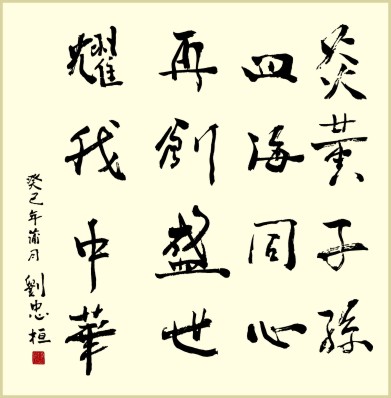 炎黄子孫
四海同心
再創盛世
耀我中華
癸巳年蒲月
劉忠桓